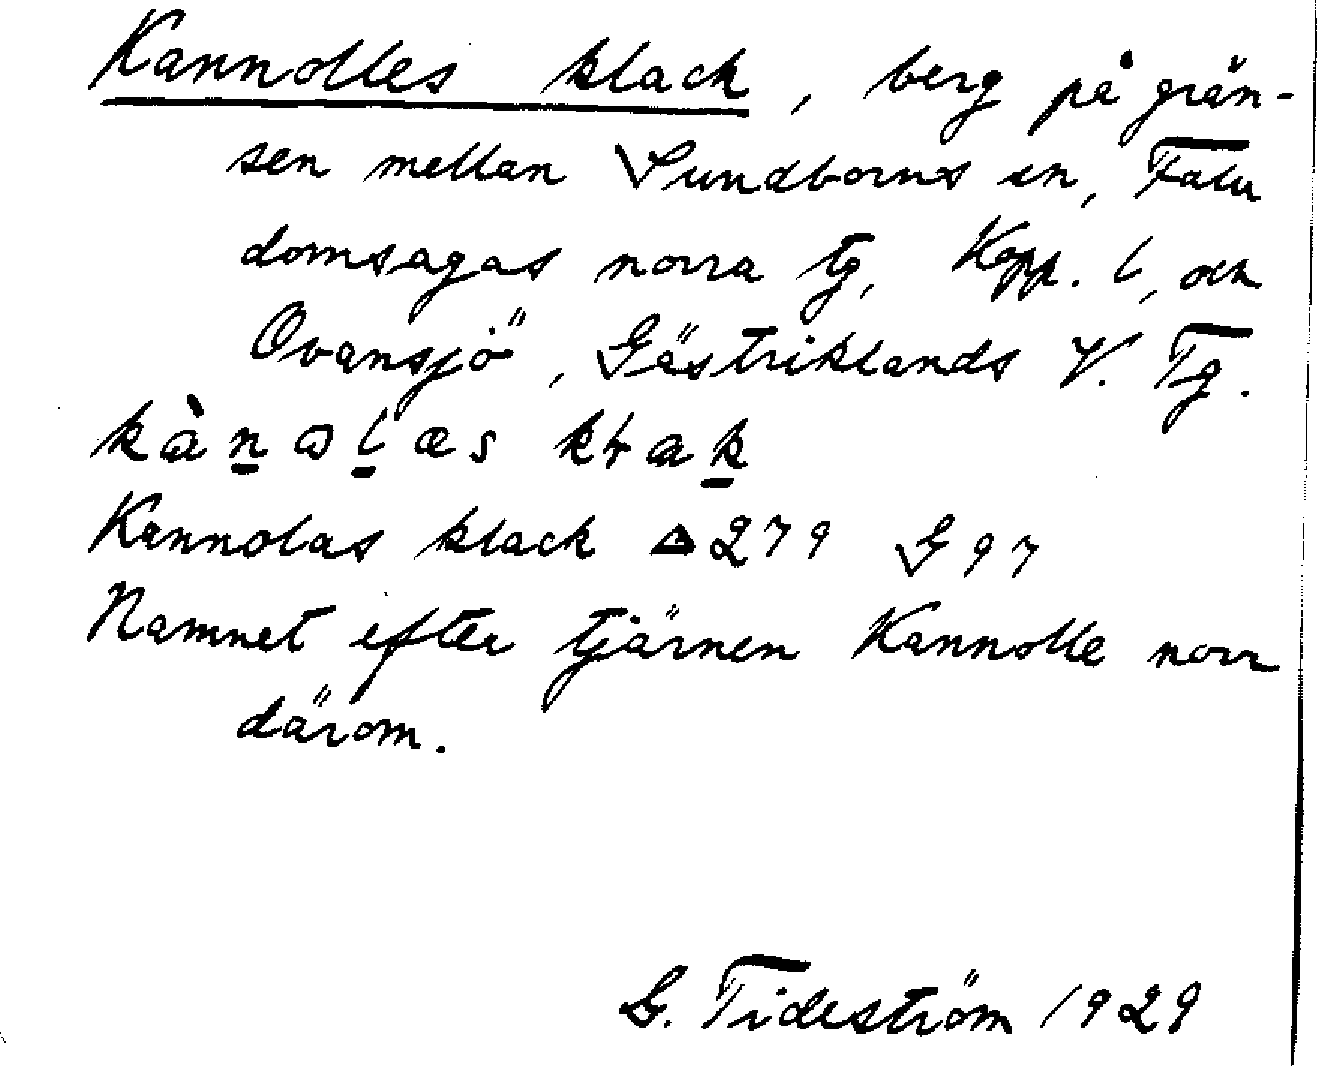 Kannolles klack, berg på grän-
sen mellan Sundborns sn, Falu
domsagas norra tg, Kopp. l, och
Ovansjö, Gästriklands V. Tg.
Kannolas klack △ 279 G 97
Namnet efter tjärnen Kannolle norr
därom.
G. Tideström 1929